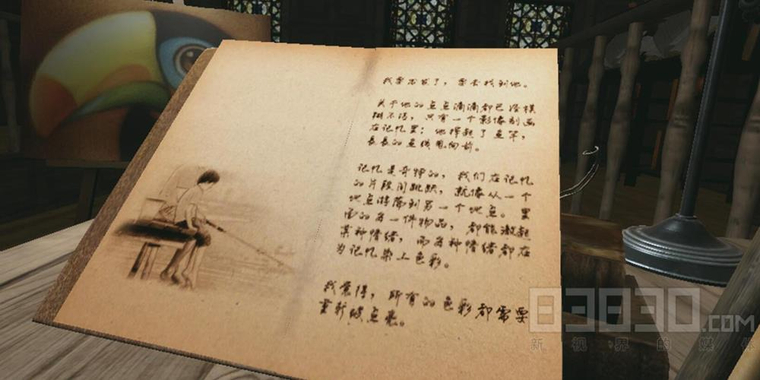 我要出发了，要去找到他。
关于他的点点滴滴都已经模
糊不清，只有一个影像刻画
在记忆里：他挥起了鱼竿，
长长的鱼线甩向前。
记忆是奇妙的，我们在记忆
的片段间跳跃，就像从一个
地点游荡到另一个地点。里
面的每一件物品，都能激起
某种情绪，而每种情绪都在
为记忆染上色彩。
我觉得，所有的色彩都需要
重新被点亮。
83830.COM